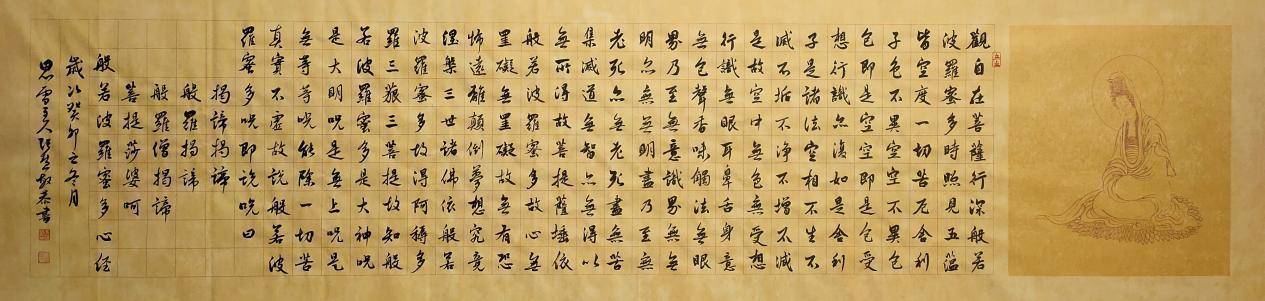 觀自在菩薩行深般若
波羅蜜多時照見五蘊
皆空度一切苦厄舍利
子色不異空空不異色
色即是空空即是色受
想行識亦復如是舍利
子是諸法空相不生不
滅不垢不淨不增不減
是故空中無色無受想
行識無眼耳鼻舌身意
無色聲香味觸法無眼
界乃至無意識界無無
明亦無無明盡乃至無
老死亦無老死盡無苦
集滅道無智亦無得以
無所得故菩提薩埵依
般若波羅蜜多故心無
罣礙無罣礙故無有恐
怖遠離顛倒夢想究竟
涅槃三世諸佛依般若
波羅蜜多故得阿耨多
羅三藐三菩提故知般
若波羅蜜多是大神咒
是大明咒是無上咒是
無等等咒能除一切苦
真實不虛故說般若波
羅蜜多咒即說咒曰
揭諦揭諦
般羅揭諦
般羅僧揭諦
菩提莎婆呵
般若波羅蜜多心經
歲次癸卯之冬月
思雪主人書